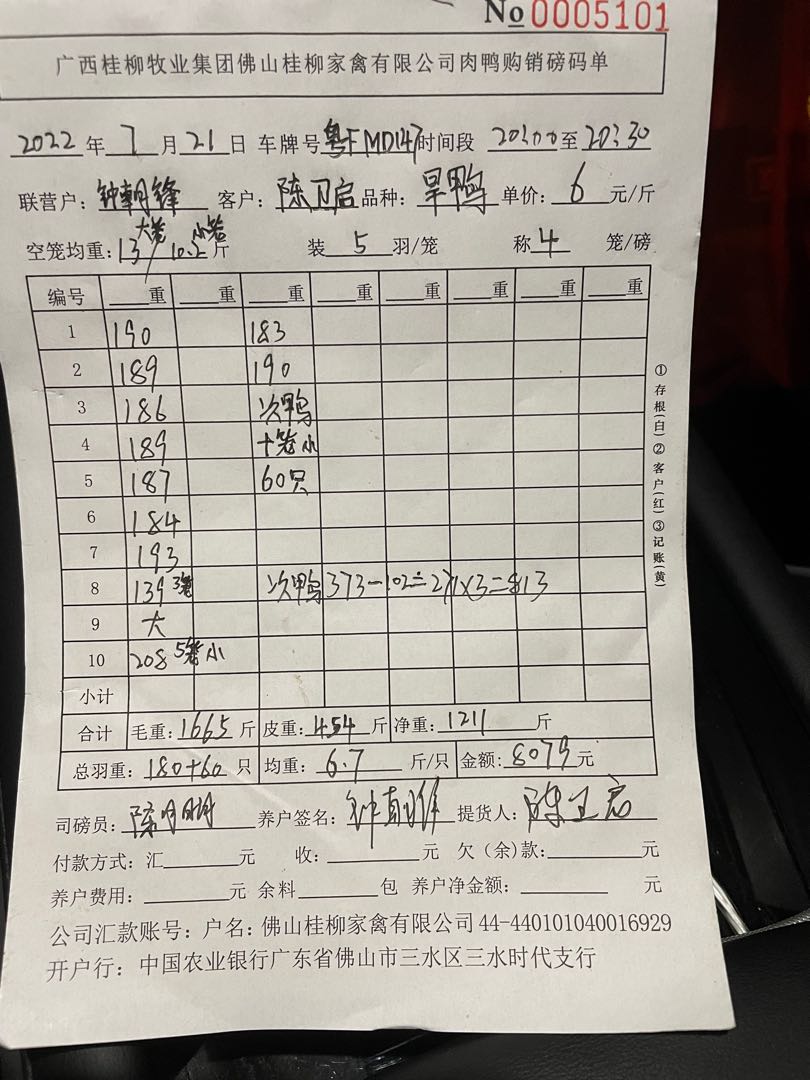 No 0005101
广西桂柳牧业集团佛山桂柳家禽有限公司肉鸭购销磅码单
2022 年 7 月 21 日 车牌号 粤FMD147 时间段 20:00 至 20:30
联营户：钟朝锋 客户：陈卫启 品种：旱鸭 单价：6 元/斤
空笼均重：13大笼/10.2小笼斤 装 5 羽/笼 称 4 笼/磅
编号 重 重 重 重 重 重 重 重
1 190 183
2 189 190
3 186 次鸭
4 189 十笼小
5 187 60只
6 184
7 193
8 139 3笼 次鸭 373-102=271×3=813
9 大
10 208 5笼小
小计
合计 毛重：1665 斤 皮重：454 斤 净重：1211 斤
总羽重：180+60 只 均重：6.7 斤/只 金额：8079 元
司磅员： 养户签名： 提货人：
付款方式：汇 元 收： 元 欠（余）款： 元
养户费用： 元 余料 包 养户净金额： 元
公司汇款账号：户名：佛山桂柳家禽有限公司 44-440101040016929
开户行：中国农业银行广东省佛山市三水区三水时代支行
①存根(白)②客户(红)③记账(黄)